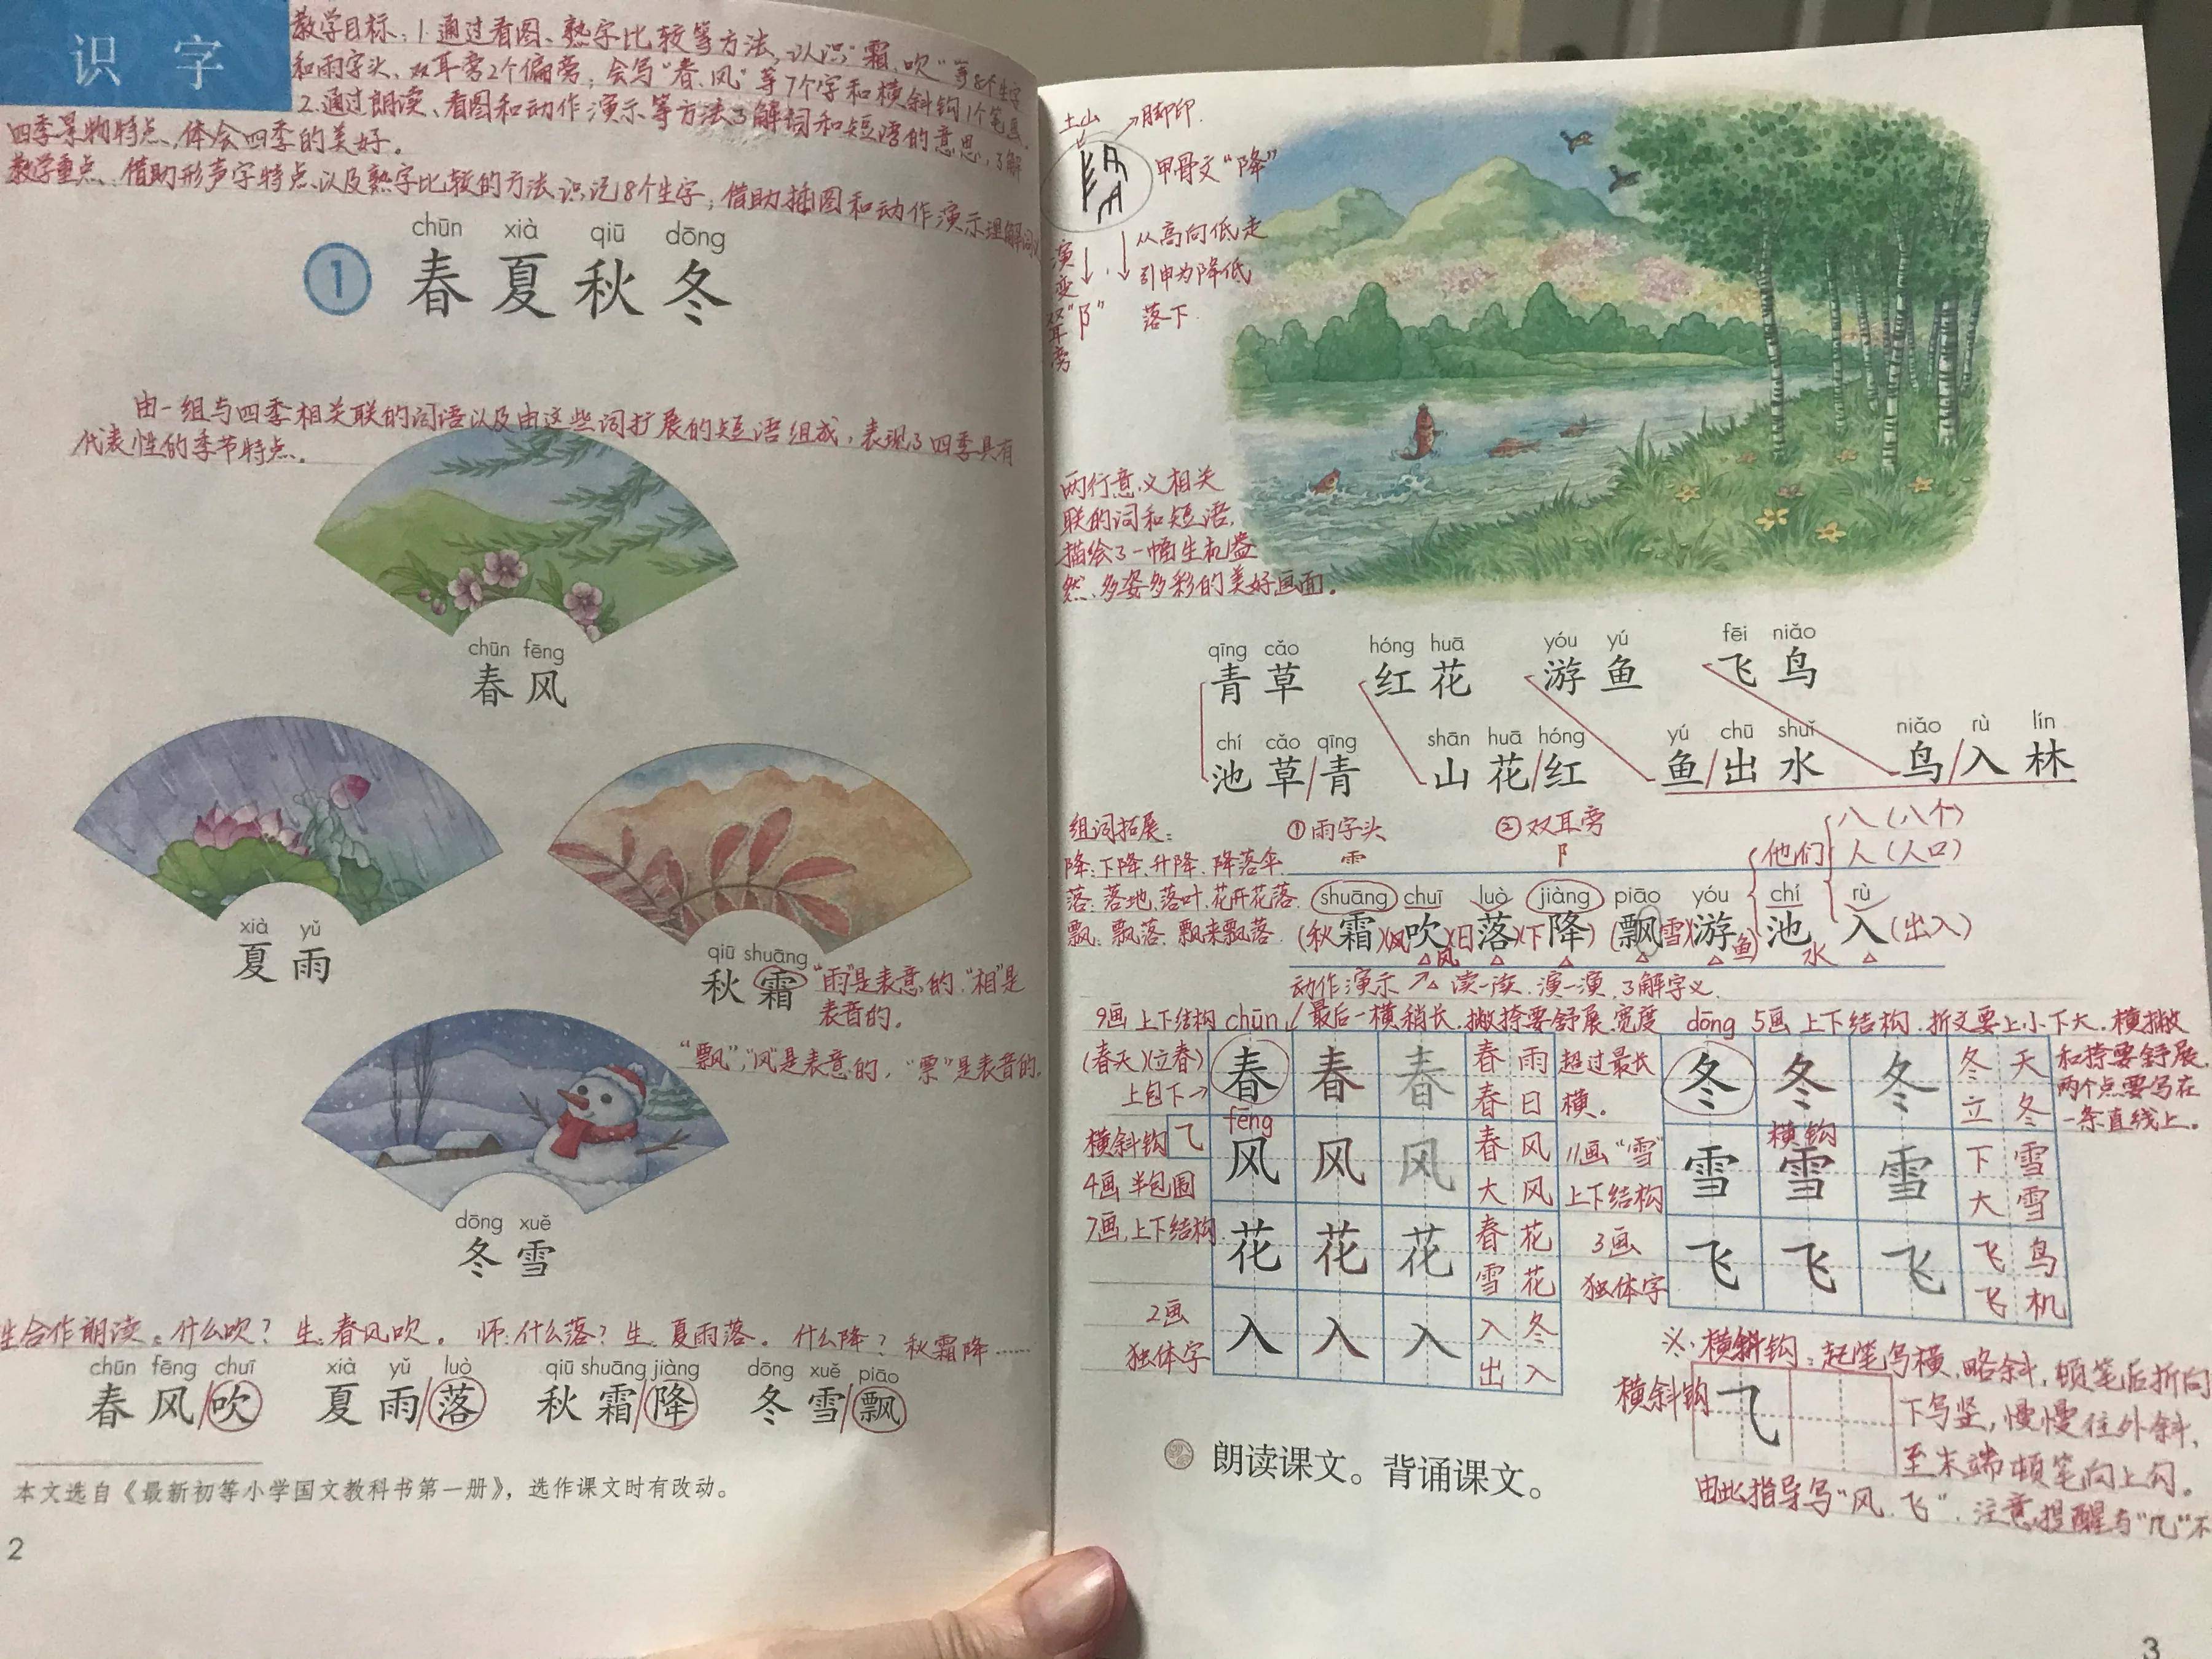 识 字
教学目标：1.通过看图、熟字比较等方法，认识“霜、吹”等8个生字
和雨字头、双耳旁2个偏旁；会写“春、风”等7个字和横斜钩1个笔画。
2.通过朗读、看图和动作演示等方法了解词和短语的意思，了解
四季景物特点，体会四季的美好。
教学重点：借助形声字特点以及熟字比较的方法识记8个生字；借助插图和动作演示理解词
chūn xià qiū dōng
① 春 夏 秋 冬
由一组与四季相关联的词语以及由这些词扩展的短语组成，表现了四季具有
代表性的季节特点。
chūn fēng
春 风
xià yǔ
夏 雨
qiū shuāng
秋 霜
“雨”是表意的，“相”是
表音的。
“飘”，“风”是表意的，“票”是表音的。
dōng xuě
冬 雪
生合作朗读。什么吹？ 生：春风吹。 师：什么落？ 生：夏雨落。 什么降？ 秋霜降……
chūn fēng chuī xià yǔ luò qiū shuāng jiàng dōng xuě piāo
春 风/吹 夏 雨/落 秋 霜/降 冬 雪/飘
本文选自《最新初等小学国文教科书第一册》，选作课文时有改动。
2
土山 脚印
甲骨文“降”
从高向低走
引申为降低
落下
演变
双耳旁
“阝”
两行意义相关
联的词和短语，
描绘了一幅生机盎
然、多姿多彩的美好画面。
qīng cǎo hóng huā yóu yú fēi niǎo
青 草 红 花 游 鱼 飞 鸟
chí cǎo qīng shān huā hóng yú chū shuǐ niǎo rù lín
池 草/青 山 花/红 鱼/出 水 鸟/入 林
组词拓展：
降：下降、升降、降落伞
落：落地、落叶、花开花落
飘：飘落、飘来飘落
①雨字头 ②双耳旁
⻗ 阝
他们
八（八个）
人（人口）
shuāng chuī luò jiàng piāo yóu chí rù
(秋霜)(风吹)(日落)(下降) (飘雪)(游鱼) 池 入 (出入)
风 水
动作演示 ↗△ 读一读，演一演，了解字义
9画 上下结构 chūn 最后一横稍长，撇捺要舒展，宽度
超过最长
横。
(春天)(立春)
上包下→
春 春 春 春雨 春日
横斜钩 ⺄ fēng
4画 半包围
风 风 风 春风 大风
7画，上下结构
花 花 花 春花 雪花
2画
独体字
入 入 入 入冬 出入
dōng 5画 上下结构，折文要上小下大，横撇
和捺要舒展，
两个点要写在
一条直线上。
冬 冬 冬 冬天 立冬
11画“雪”
上下结构
横钩
雪 雪 雪 下雪 大雪
3画
独体字
飞 飞 飞 飞鸟 飞机
※：横斜钩：起笔写横，略斜，顿笔后折向
下写竖，慢慢往外斜，
至末端顿笔向上勾。
横斜钩 ⺄
由此指导写“风、飞”，注意提醒与“几”不
朗读课文。背诵课文。
3